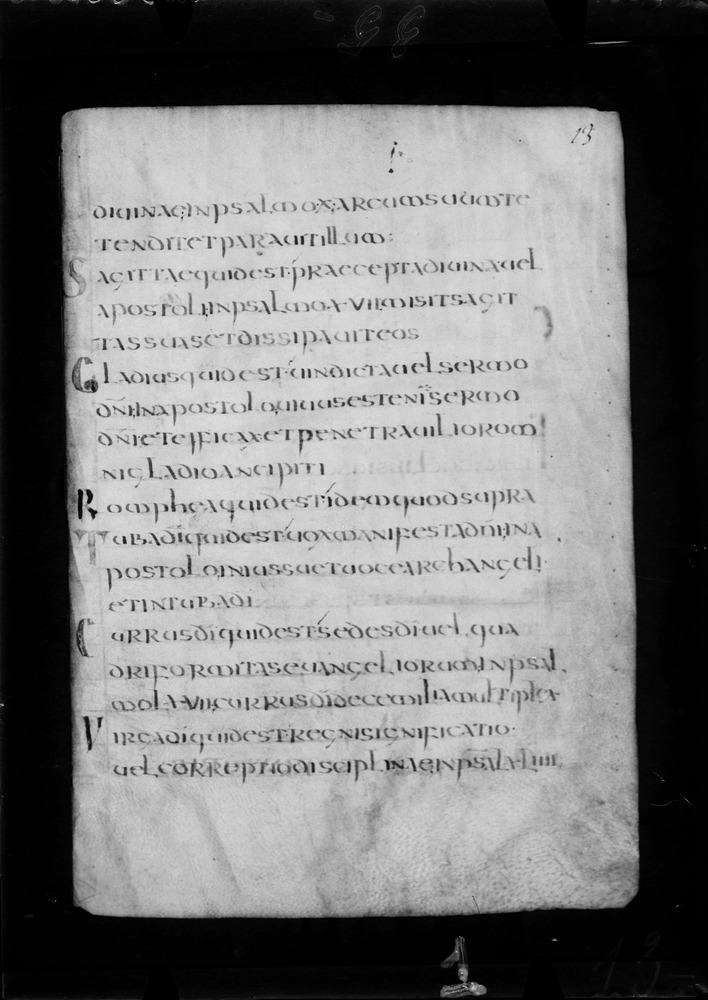 13
diuinae; in psalmo x; arcum suum te
tendit et parauit illum:
Sagittae quid est; praecepta diuina uel
apostoli; in psalmo x·vii misit sagit
tas suas et dissipauit eos
Gladius quid est; uindicta uel sermo
dn̄i; in apostolo uiuus est eni̅ sermo
dn̄i et efficax et penetrauilior om
ni gladio ancipiti
Romphea quid est; idem quod supra
Tuba di̅ quid est; uox manifesta dn̄i; in a
postolo in iussu et uoce archangeli·
et in tuba di̅
Currus di̅ quid est; sedes di̅ uel qua
driformitas euangeliorum; in psal
mo lxvii; currus di̅ decem milia multiplex
Virga di̅ quid est; regni significatio·
uel correptio disciplinae; in psal xliiii